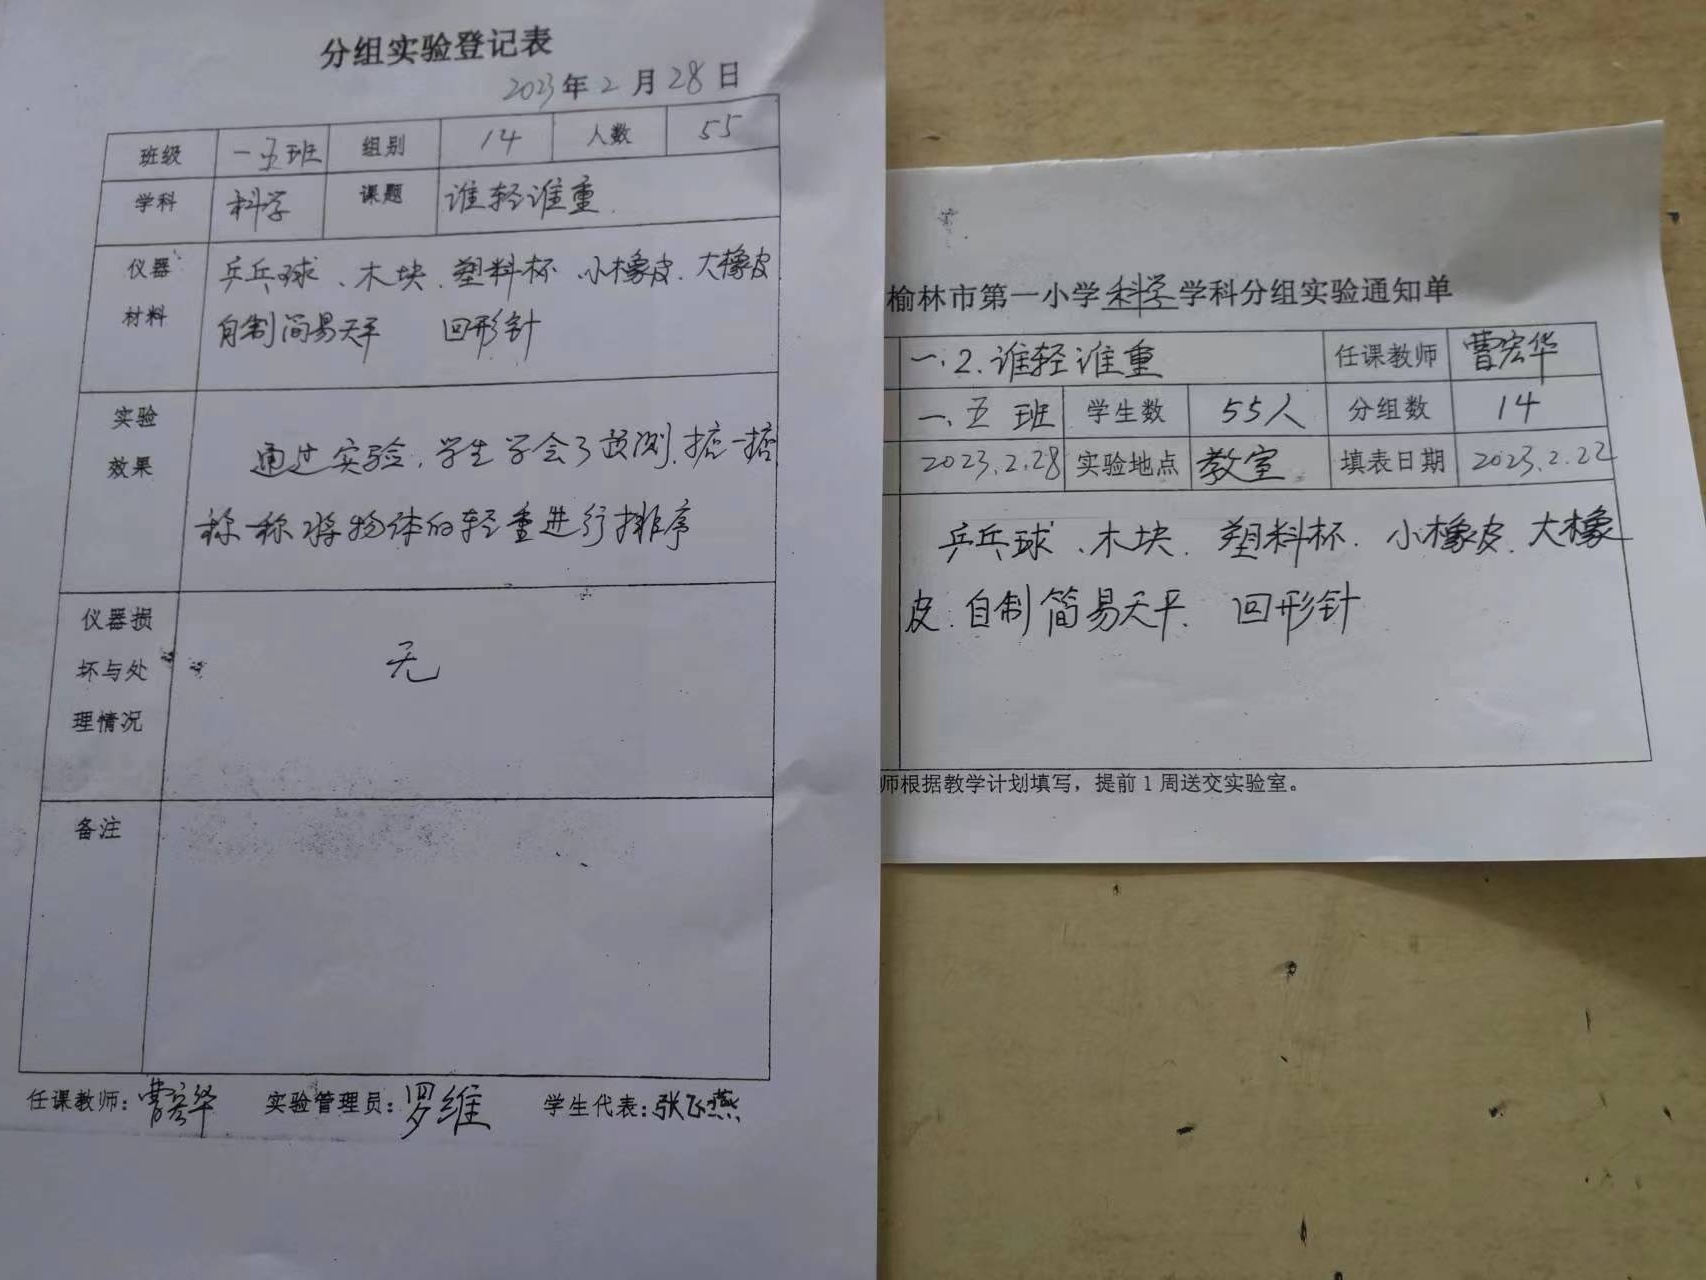 分组实验登记表
2023年2月28日
班级 一五班 组别 14 人数 55
学科 科学 课题 谁轻谁重
仪器 乒乓球、木块、塑料杯、小橡皮、大橡皮
材料 自制简易天平 回形针
实验 通过实验,学生学会了预测、掂一掂
效果
称一称将物体的轻重进行排序
仪器损
坏与处 无
理情况
备注
任课教师:曹宏华 实验管理员:罗维 学生代表:张飞燕
榆林市第一小学科学学科分组实验通知单
一.2.谁轻谁重 任课教师 曹宏华
一.五班 学生数 55人 分组数 14
2023.2.28 实验地点 教室 填表日期 2023.2.22
乒乓球、木块、塑料杯、小橡皮、大橡
皮、自制简易天平、回形针
师根据教学计划填写,提前1周送交实验室。